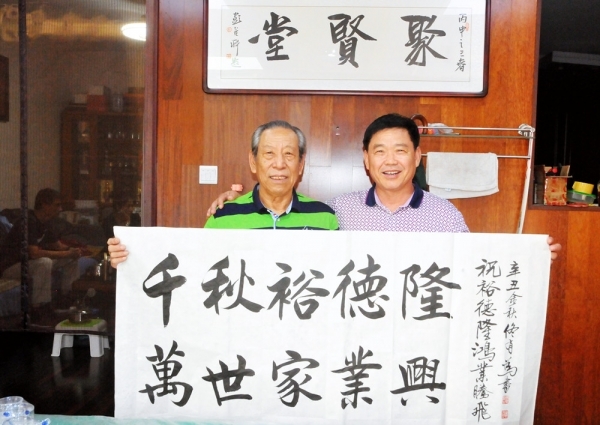 聚賢堂
丙申之三春
千秋裕德隆
萬世家業興
祝裕德隆鴻業騰飛
辛丑金秋